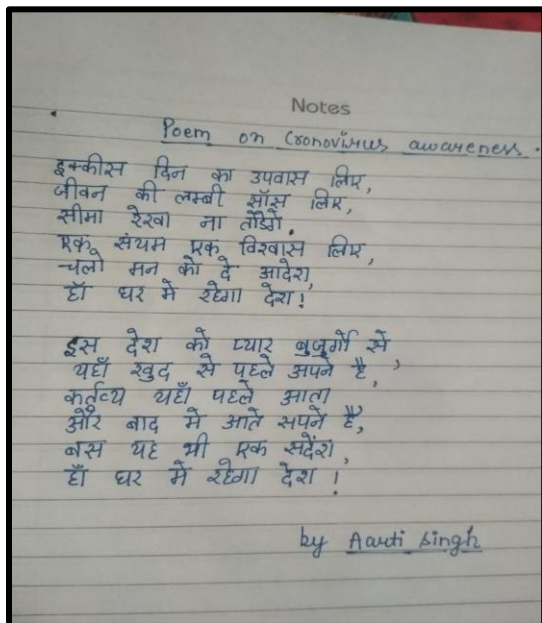 Notes
Poem on Cronovirus awareness.
इक्कीस दिन का उपवास लिए,
जीवन की लम्बी साँस लिए,
सीमा रेखा ना तोड़ो.
एक संयम एक विश्वास लिए,
चलो मन को दे आदेश,
हाँ घर मे रहेगा देश!
इस देश को प्यार बुजुर्गो से
यहाँ खुद से पहले अपने है,
कर्तव्य यहाँ पहले आता
और बाद मे आते सपने है,
बस यह भी एक सदेंश,
हाँ घर मे रहेगा देश!
by Aarti Singh